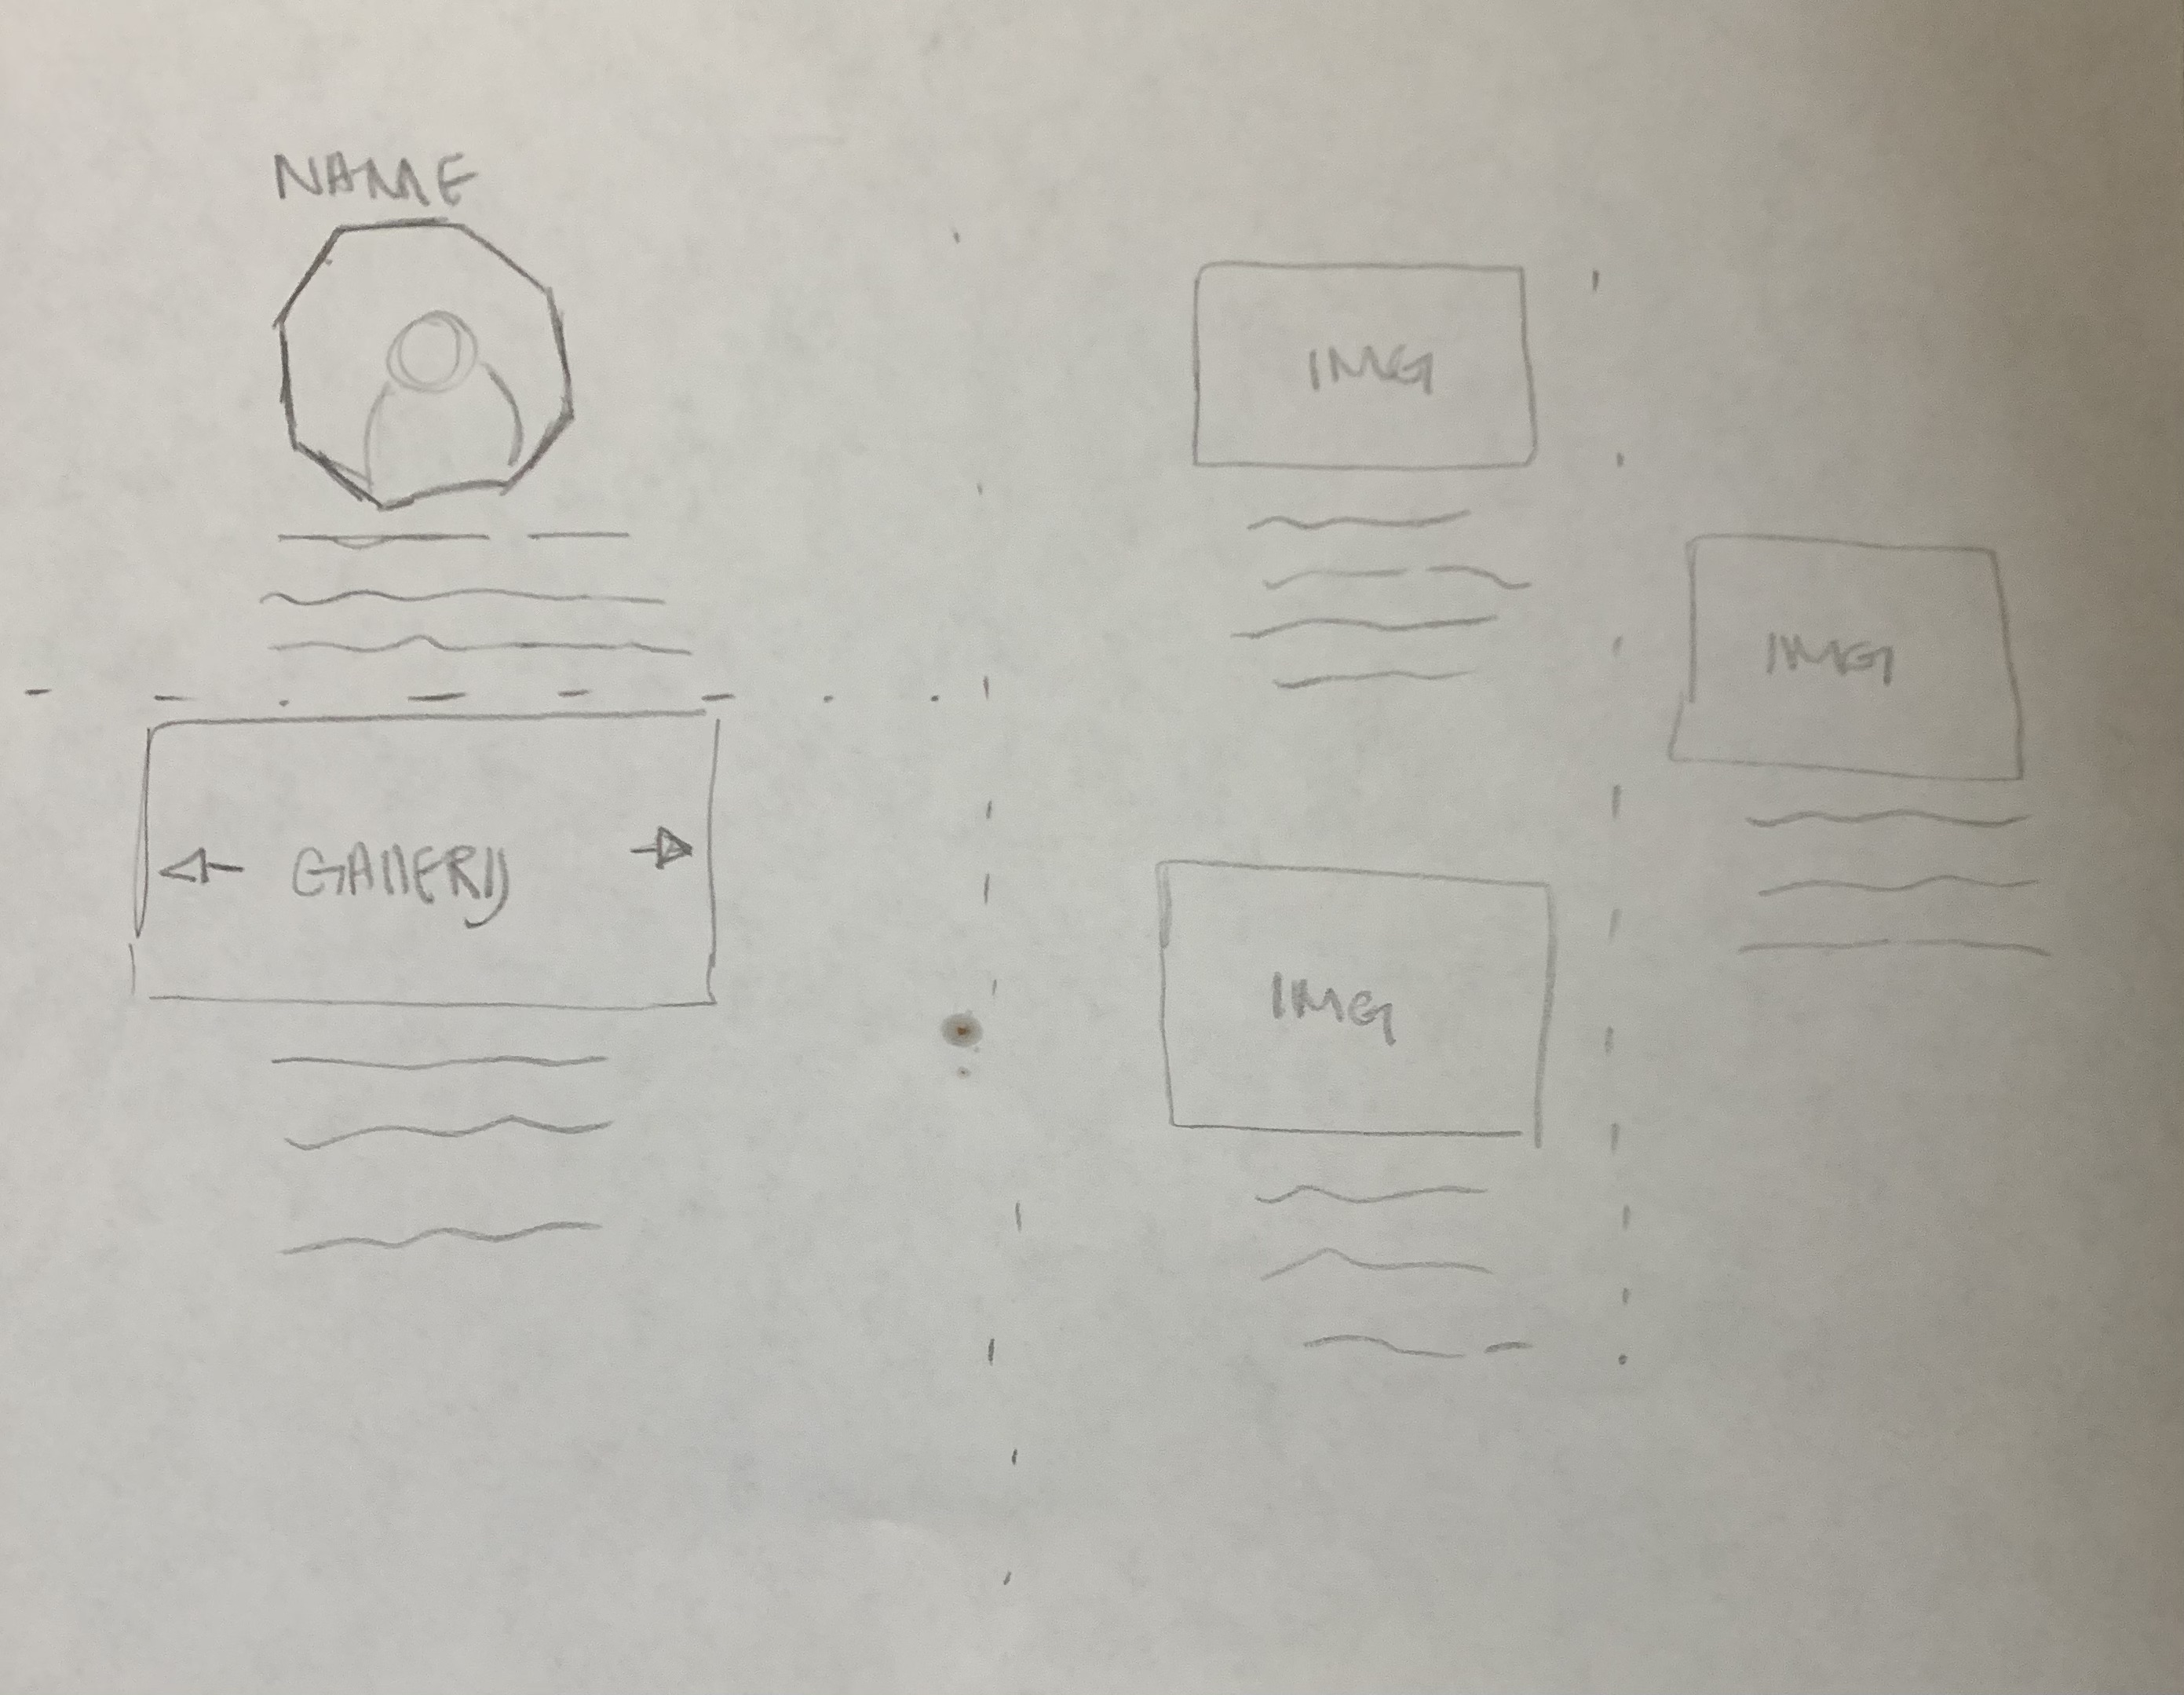 NAME
GALLERY
IMG
IMG
IMG